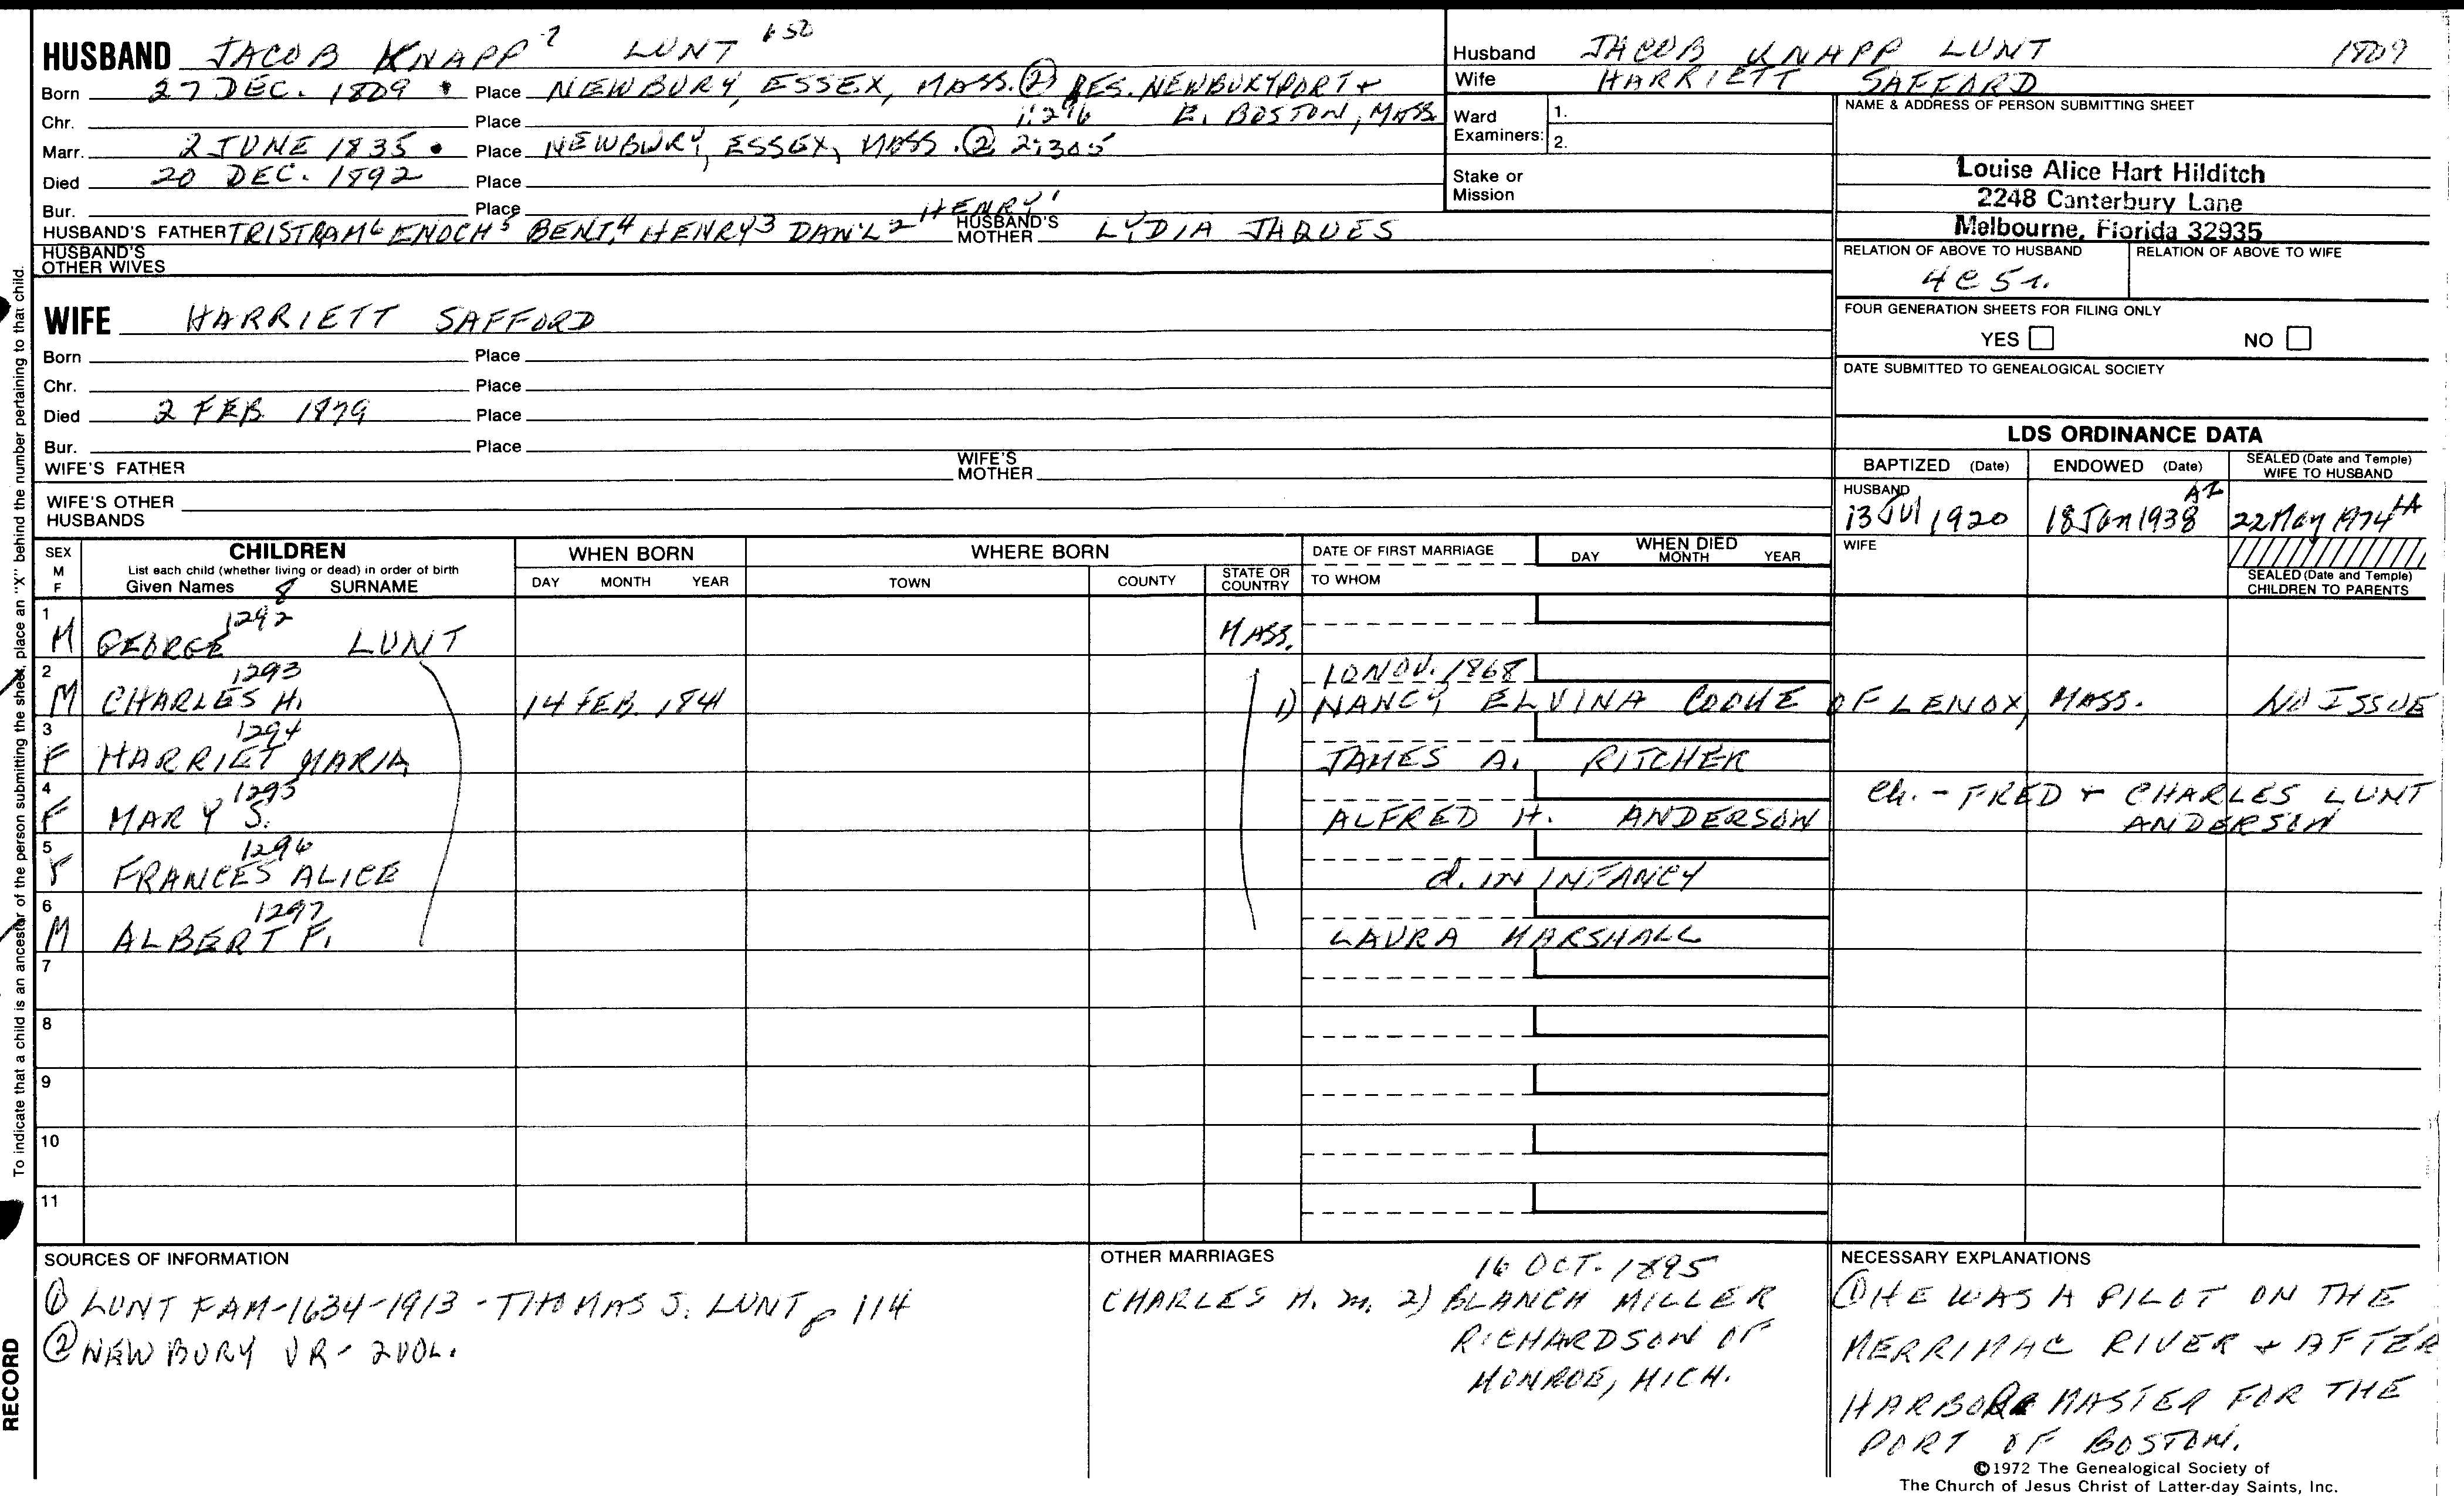 HUSBAND JACOB KNAPP 7 LUNT 650
Born 27 DEC. 1809 Place NEWBURY, ESSEX, MASS. ② RES. NEWBURYPORT +
Chr. Place 1:296 E. BOSTON, MASS
Marr. 2 JUNE 1835 Place NEWBURY, ESSEX, MASS. ② 2:305
Died 20 DEC. 1892 Place
Bur. Place
HUSBAND'S FATHER TRISTRAM 6 ENOCH 5 BENJ. 4 HENRY 3 DAN'L 2 HENRY 1 HUSBAND'S MOTHER LYDIA JAQUES
HUSBAND'S
OTHER WIVES
WIFE HARRIETT SAFFORD
Born Place
Chr. Place
Died 2 FEB 1879 Place
Bur. Place
WIFE'S FATHER WIFE'S MOTHER
WIFE'S OTHER
HUSBANDS
Husband JACOB KNAPP LUNT 1809
Wife HARRIETT SAFFORD
Ward
Examiners:
1.
2.
Stake or
Mission
NAME & ADDRESS OF PERSON SUBMITTING SHEET
Louise Alice Hart Hilditch
2248 Canterbury Lane
Melbourne, Florida 32935
RELATION OF ABOVE TO HUSBAND RELATION OF ABOVE TO WIFE
4C 5r.
FOUR GENERATION SHEETS FOR FILING ONLY
YES NO
DATE SUBMITTED TO GENEALOGICAL SOCIETY
LDS ORDINANCE DATA
BAPTIZED (Date) ENDOWED (Date) SEALED (Date and Temple) WIFE TO HUSBAND
HUSBAND
13 Jul 1920 18 Jan 1938 AZ 22 May 1974 LA
WIFE
SEALED (Date and Temple)
CHILDREN TO PARENTS
SEX
M
F
CHILDREN
List each child (whether living or dead) in order of birth
Given Names 8 SURNAME
WHEN BORN
DAY MONTH YEAR
WHERE BORN
TOWN COUNTY STATE OR COUNTRY
DATE OF FIRST MARRIAGE
TO WHOM
WHEN DIED
DAY MONTH YEAR
1 1292
M GEORGE LUNT MASS.
2 1293 10 NOV. 1868
M CHARLES H. 14 FEB. 1841 1) NANCY ELVINA COOKE OF LENOX, MASS. NO ISSUE
3 1294
F HARRIET MARIA JAMES A. RITCHER
4 1295 Ch. - FRED + CHARLES LUNT
F MARY S. ALFRED H. ANDERSON ANDERSON
5 1296
F FRANCES ALICE d. IN INFANCY
6 1297
M ALBERT F. LAURA MARSHALL
7
8
9
10
11
SOURCES OF INFORMATION
① LUNT FAM-1634-1913 - THOMAS S. LUNT p 114
② NEWBURY VR - 2 VOL.
OTHER MARRIAGES
16 OCT. 1895
CHARLES H. m. 2) BLANCH MILLER
RICHARDSON OF
MONROE, MICH.
NECESSARY EXPLANATIONS
① HE WAS A PILOT ON THE
MERRIMAC RIVER + AFTER
HARBOR MASTER FOR THE
PORT OF BOSTON.
©1972 The Genealogical Society of
The Church of Jesus Christ of Latter-day Saints, Inc.
To indicate that a child is an ancestor of the person submitting the sheet, place an "X" behind the number pertaining to that child.
RECORD